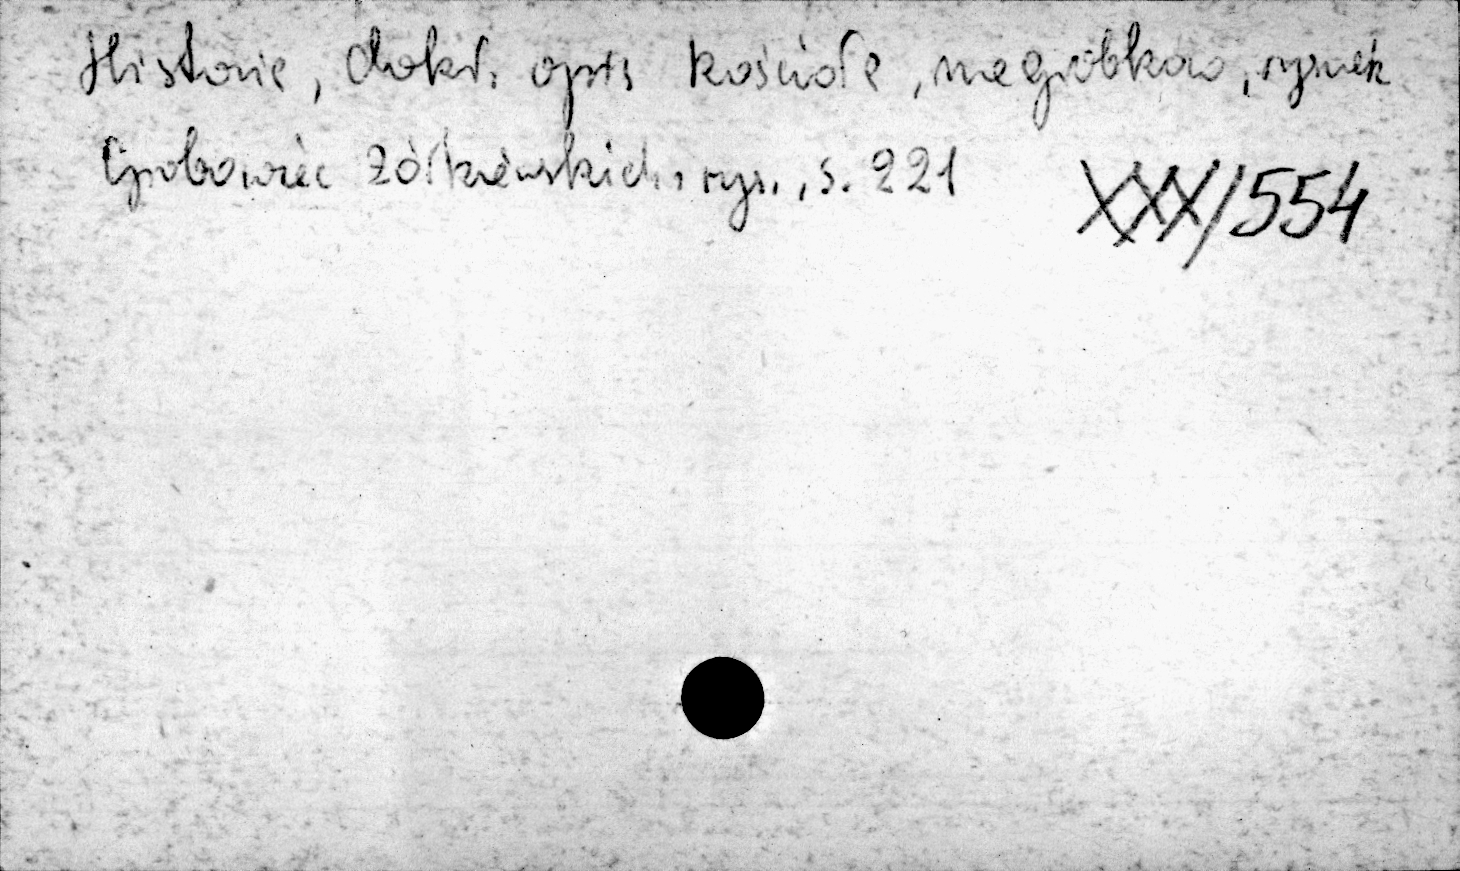 Historia, dokł. opis kościoła, nagrobków, rynek
Grobowiec Żółkiewskich, rys., s. 221
XXX/554